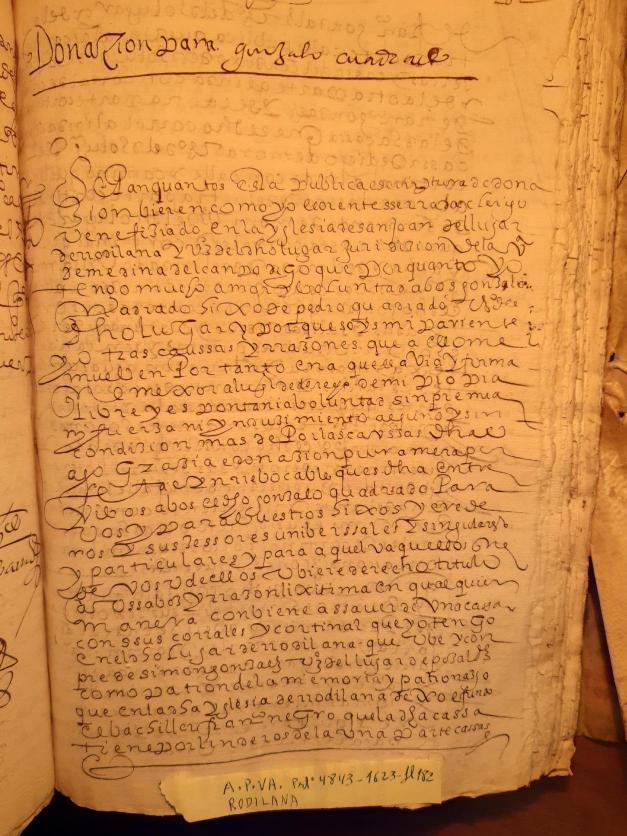 Donazion para gonzalo cuadrado
Sepan quantos esta publica escriptura de dona
zion bieren como yo lorente serrador clerigo
venefiziado en la yglesia de san Joan del lugar
de rrodilana y vº del dho lugar jurisdizion de la vª
de medina del canpo digo que por quanto yo
tengo mucho amor y voluntad a bos gonzalo
quadrado hixo de pedro quadrado vº deste
dho lugar y porque soys mi pariente
y otras caussas y rrazones que a ello me
mueben por tanto en aquella via y forma
que mexor a lugar de derecho de mi propia
libre y espontania boluntad sin premia
ni fuerza ni ynduzimiento alguno y sin
condizion mas de por las caussas dhas
ago grazia e donazion pura mera per
feta e ynrrebocable ques dha entre
vibos a bos el dho gonzalo quadrado para
vos y para vuestros hixos y erede
ros e susessores unibersales e singulares
y particulares y para aquel v aquellos que
de vos v dellos vbiere derecho titulo
caossa boz y rrazon lixitima en qualquier
manera conbiene a ssauer de vna cassa
con sus corrales y cortinal que yo tengo
en el dho lugar de rrodilana que vbe y con
pre de simon gonzales vº del lugar de pozaldes
como patron de la memoria y patronazgo
que en la dha yglesia de rrodilana dexo e fundo
el bachiller franco negro que la dha cassa
tiene por linderos de la vna parte cassas
A.P.VA. Protº 4843-1623-fl 182
RODILANA